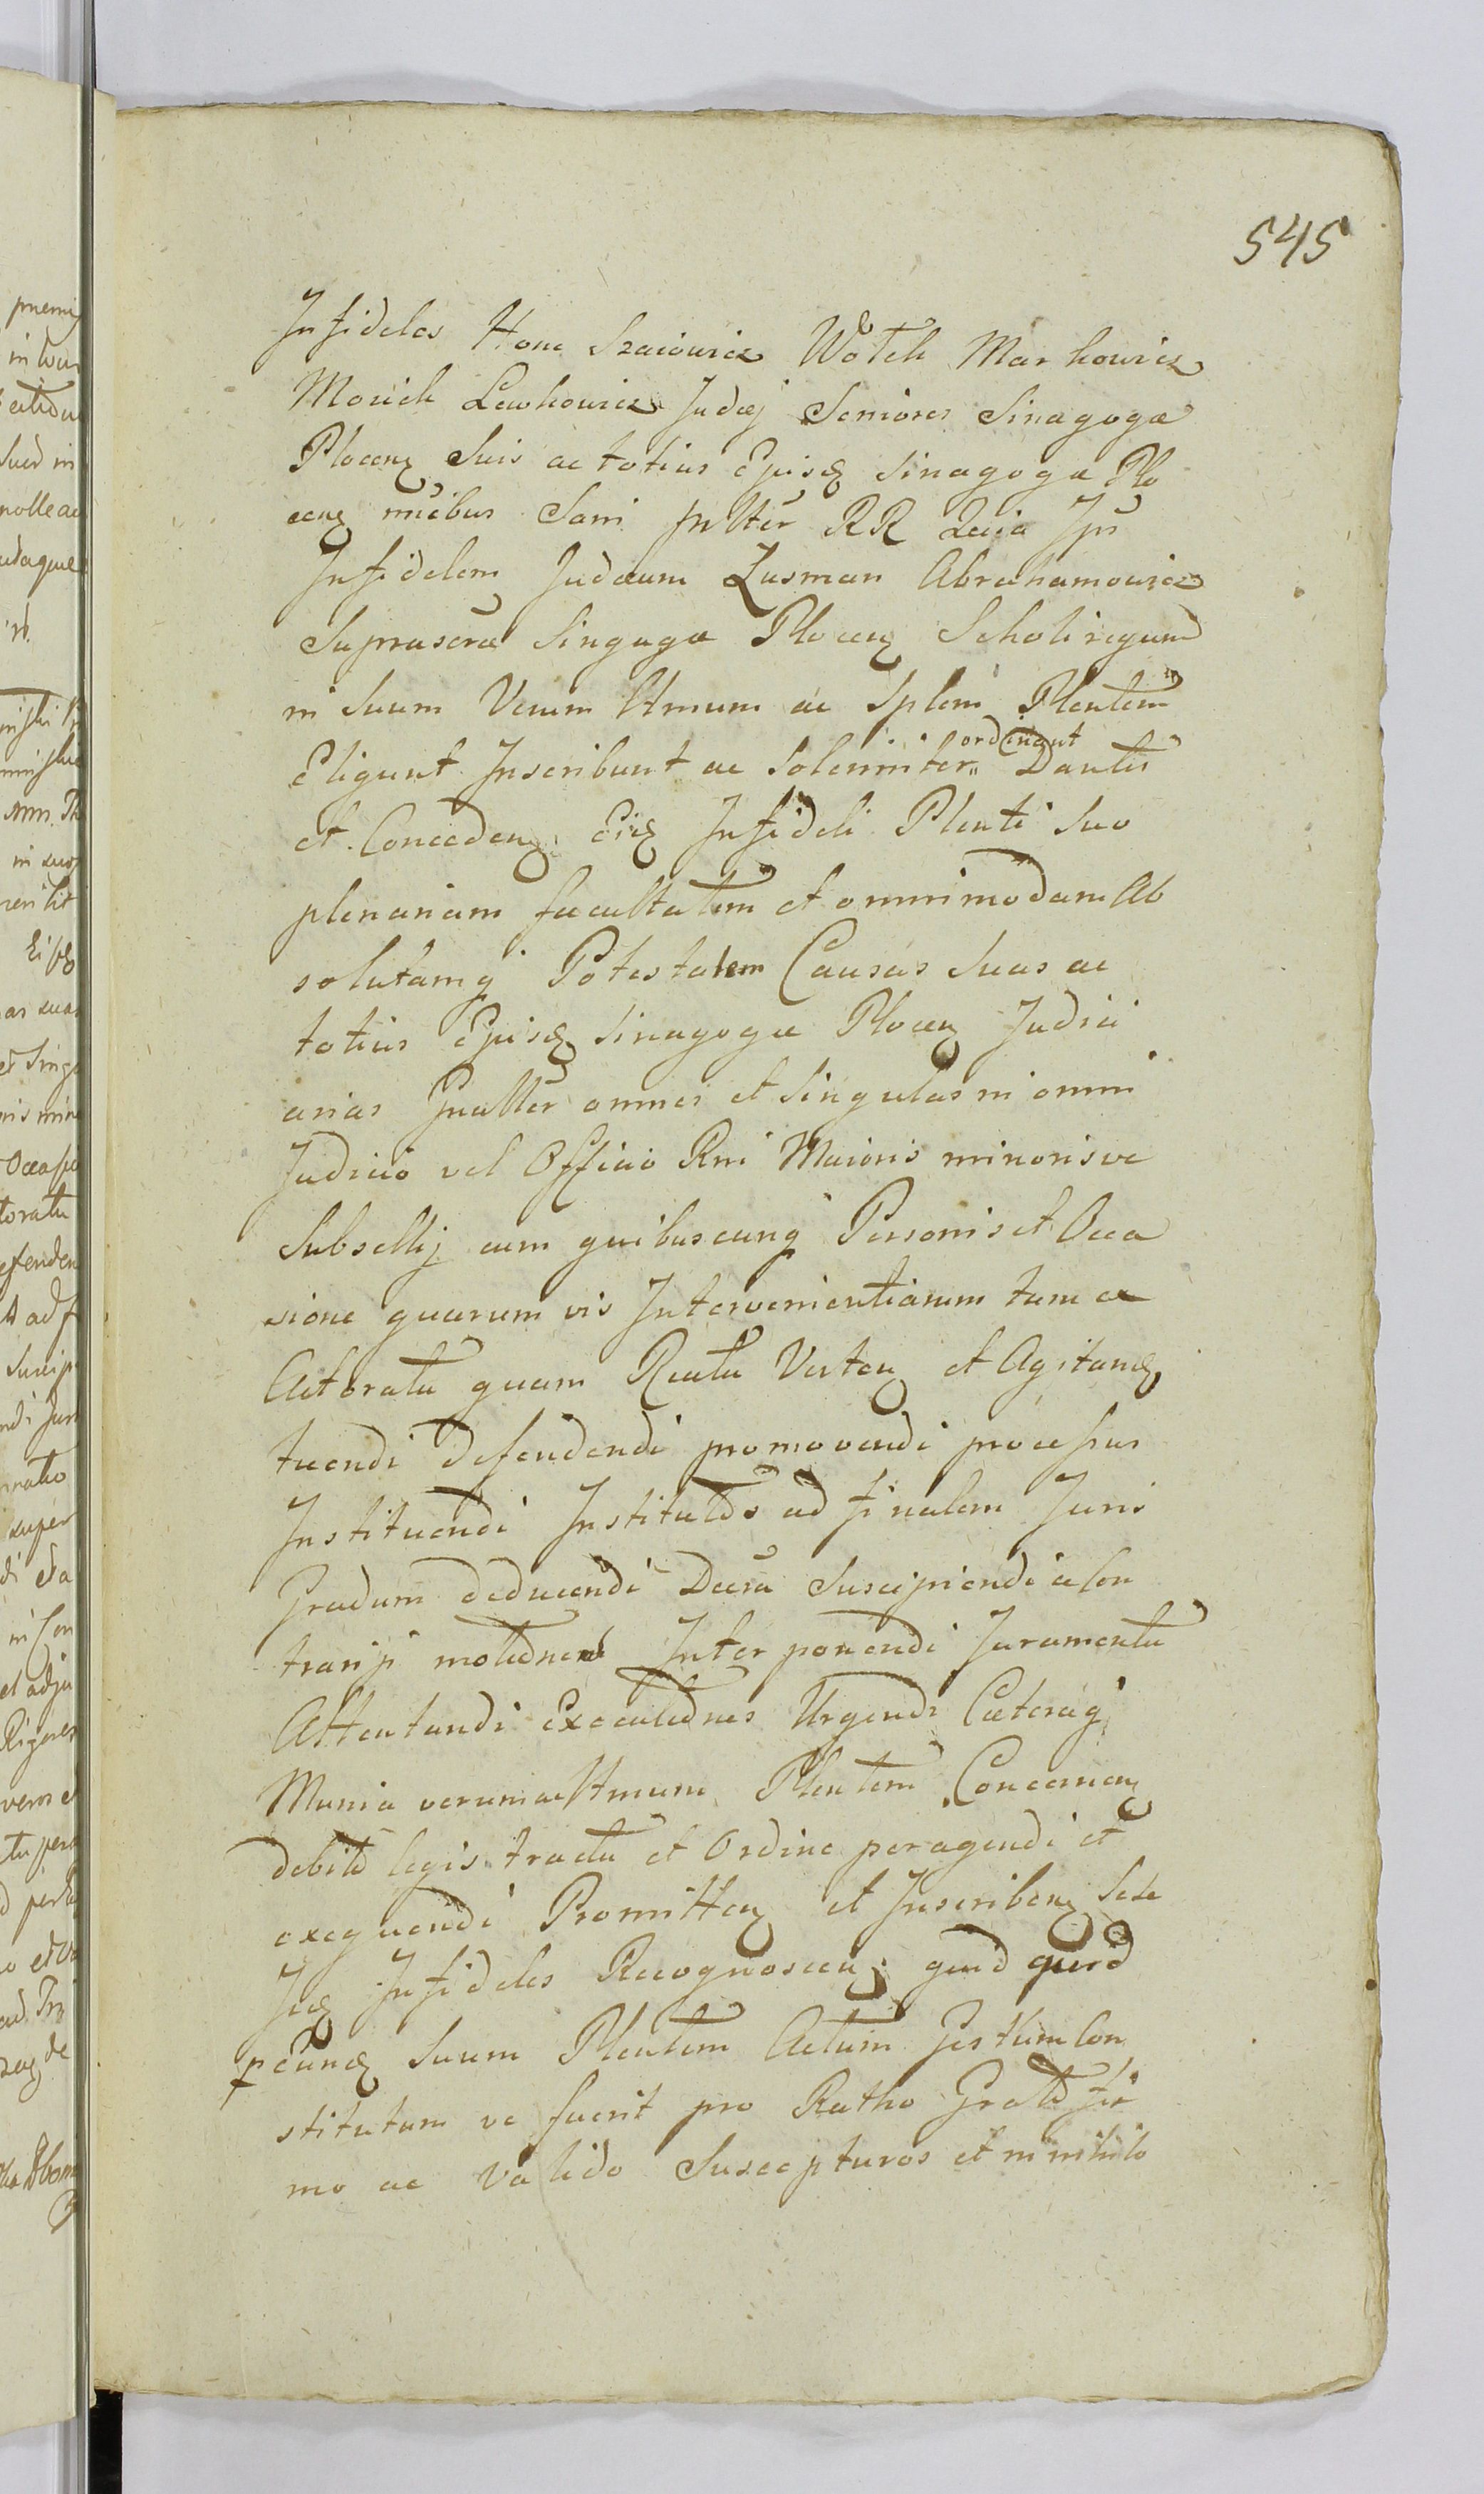 545
Infideles Hone Szaiowicz Wolek Markowicz
Mosiek Lewkowicz Judæj Seniores Sinagogæ
Plocen Suis ac totius Ejusq Sinagogæ Plo
cen nncibus Sani pntter RR Recia Jpu
Infidelem Judæum Zusman Abrahamowicz
Suprascræ Singagæ Plocen Scholiregum
in Suum Verum Ltmum ac Splem Plentem
Eligunt Inscribunt ac Solenniter ordinant Dantes
et Conceden Eiq Infideli Plenti Suo
plenariam facultatem et omnimodam Ab
solutamq Potestatem Causas Suas ac
totius Ejusq Sinagogæ Plocen Judici
arias Gnaliter omnes et Singulas in omni
Judicio vel Officio Rni Maioris minorisve
Subsellij cum quibuscunq Personis et Occa
sione quarum vis Intervenientiarum tum ex
Actoratu quam Reatu Verten et Agitand
tuendi defendendi promovendi processus
Instituendi Institutos ad finalem Juris
Gradum deducendi Decra Suscipiendi a Con
trarijs motionem Interponendi Juramenta
Attentandi Executiones Urgendi Cæteraq
Munia verum ac Ltmum Plentem Concernen
debito legis tractu et Ordine peragendi et
exequendi Promitten et Inscriben Sese
Jidq Infideles Recognoscen quid quid
p eundq Suum Plentem Actum Gestum Con
stitutum ve fuerit pro Ratho Grato fir
mo ac Valido Suscepturos et in nihilo